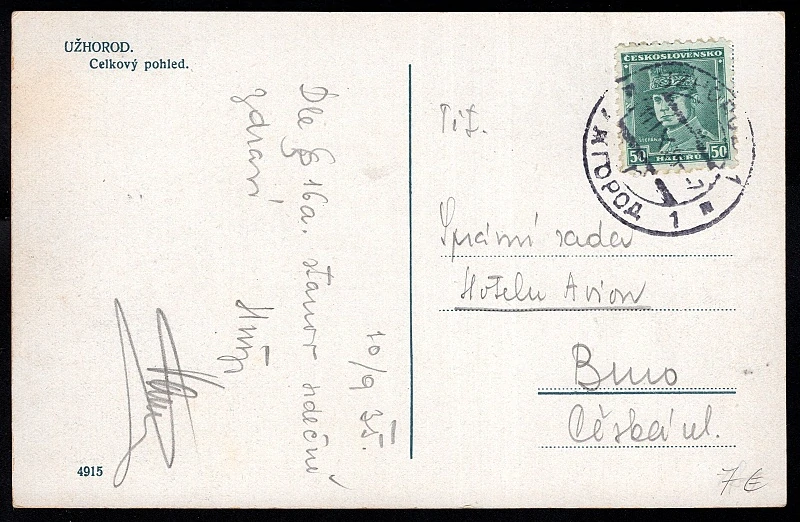 UŽHOROD.
Celkový pohled.
Dle § 16a. stanov srdečně
zdraví
10/9 35.
4915
ČESKOSLOVENSKO
50 HALÉŘŮ 50
УЖГОРОД 1
Tit.
Správní rada
Hotelu Avion
Brno
Česká ul.
7 €